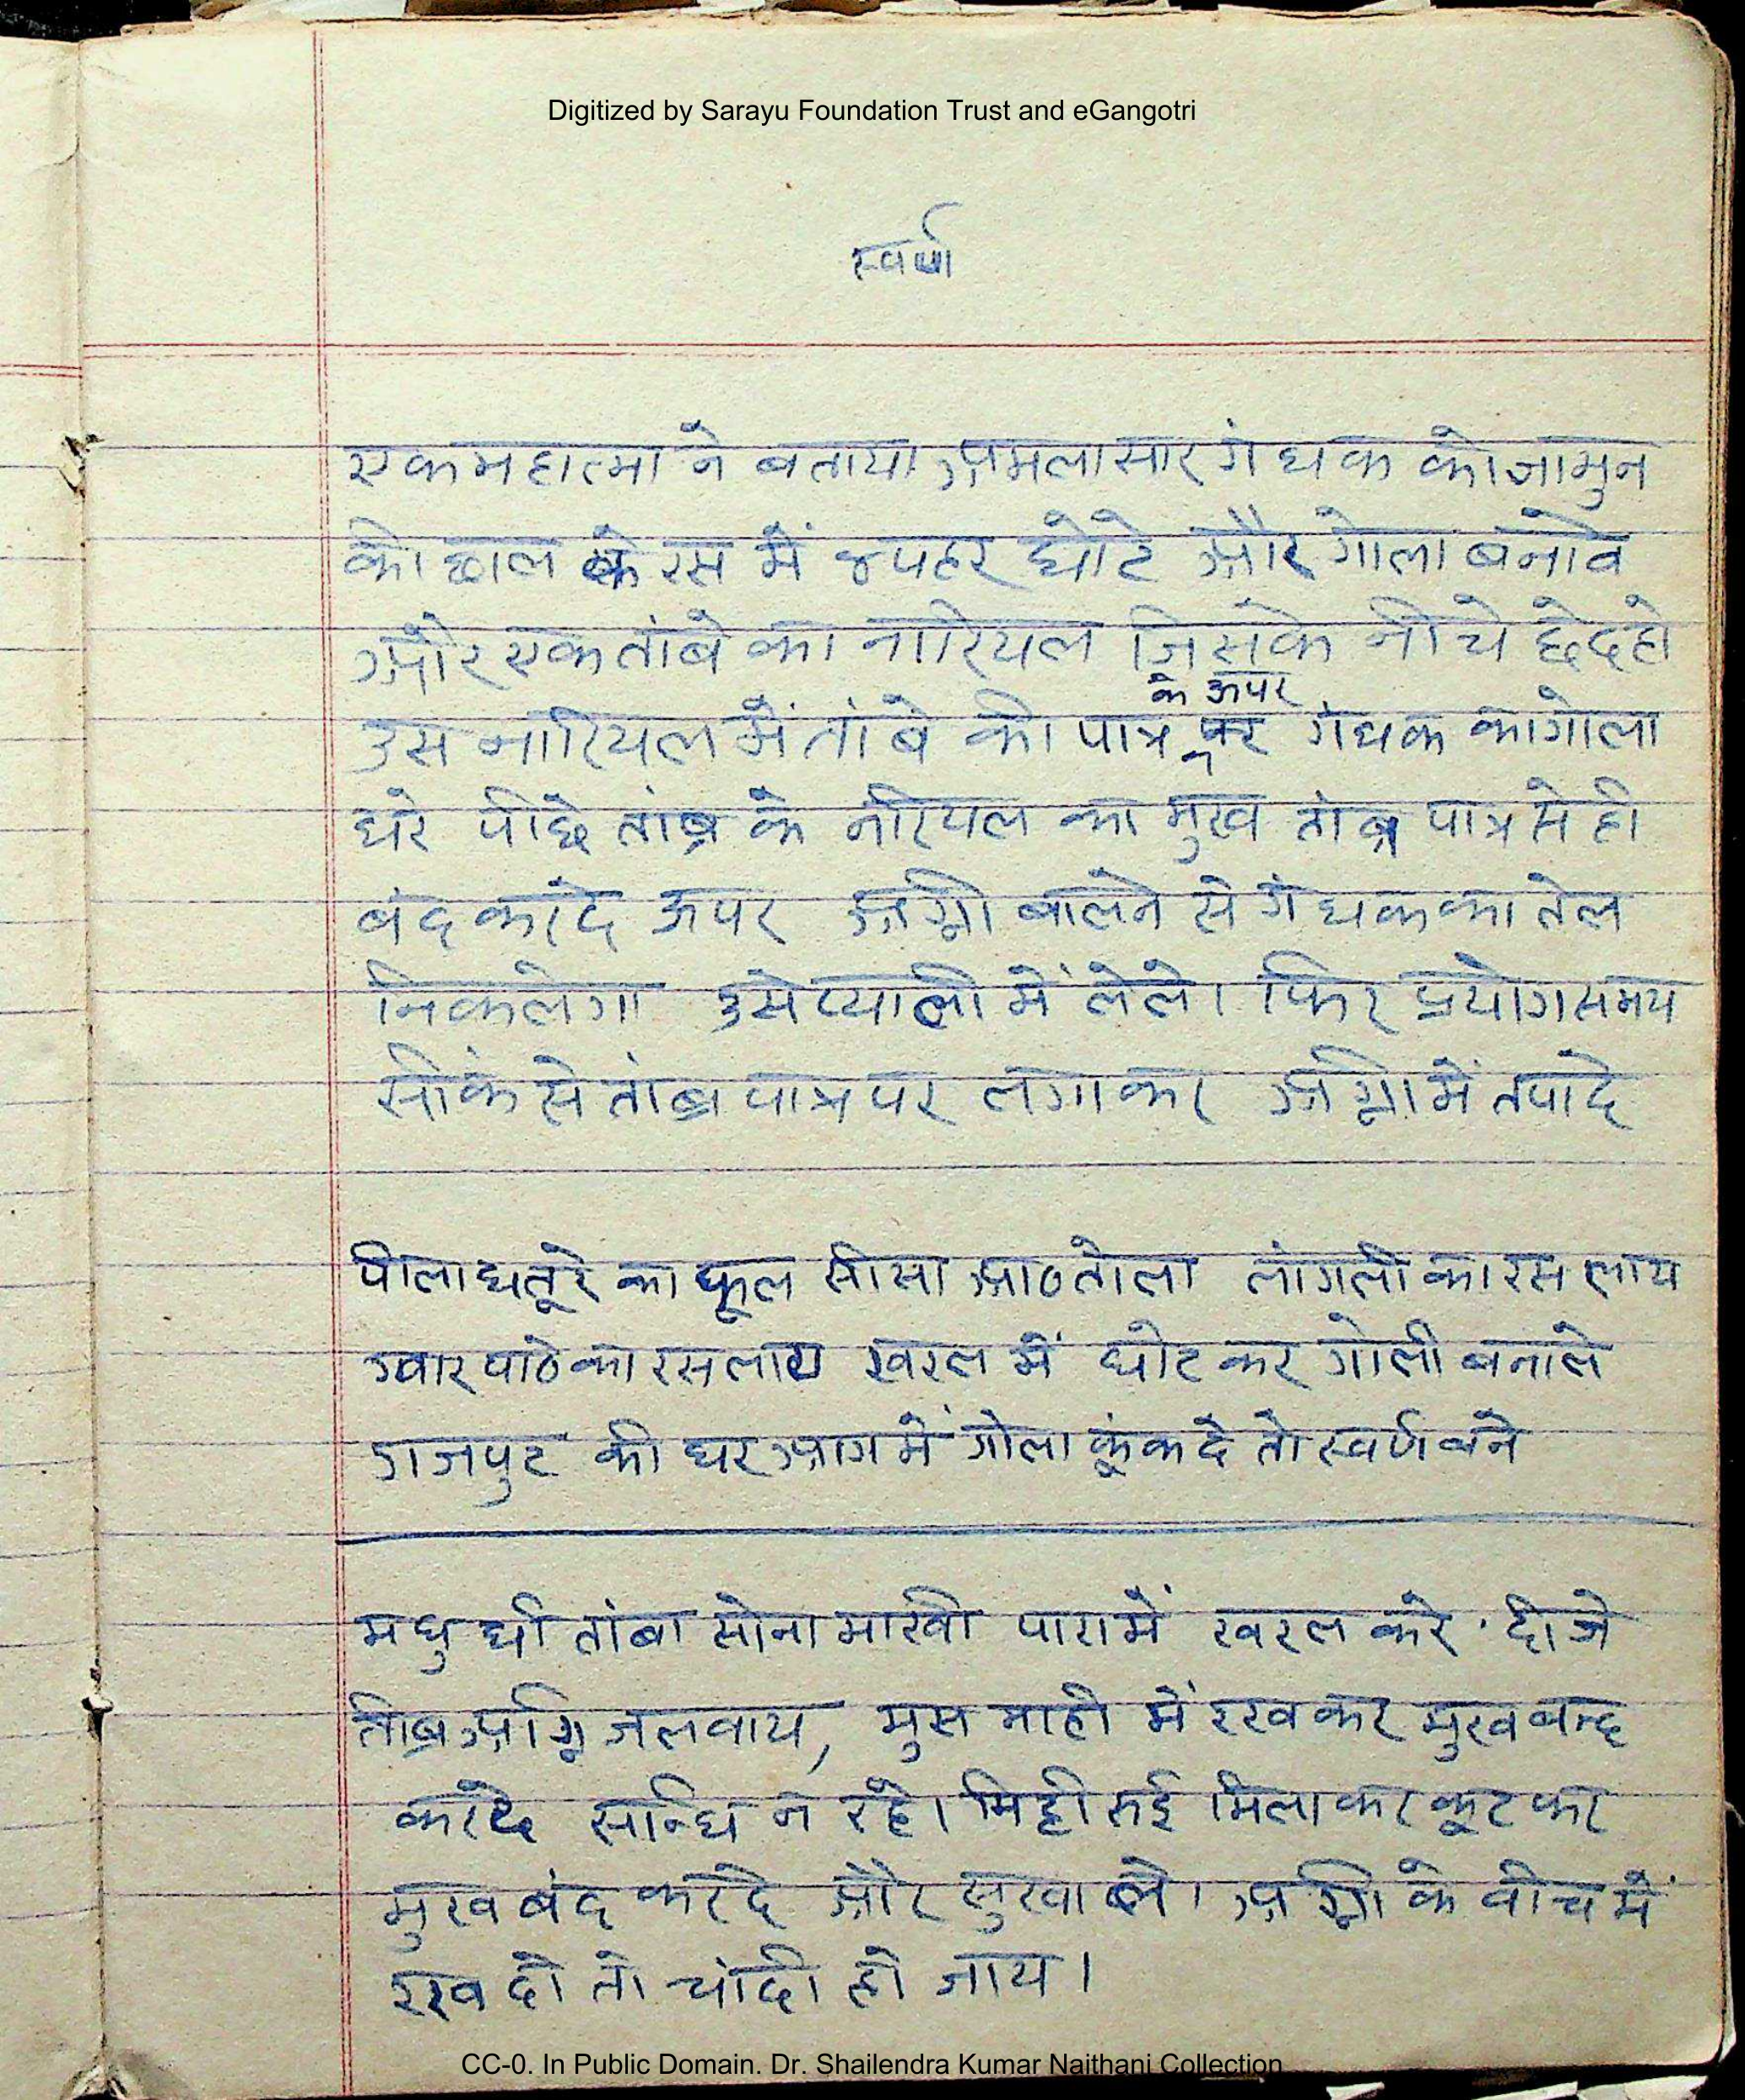 Digitized by Sarayu Foundation Trust and eGangotri
स्वर्ण
एक महात्मा ने बताया अमलासार गंधक को जामुन
की छाल के रस में ४ पहर घोटे और गोला बनावे
और एक तांबे का नारियल जिसके नीचे छेद हो
के ऊपर
उस नारियल में तांबे की पात्र पर गंधक का गोला
धरे पीछे तांब्र के नरियल का मुख तांब्र पात्र से ही
बंद कर दे ऊपर अग्नी बालने से गंधक का तेल
निकलेगा उसे प्याली में लेले। फिर प्रयोग समय
सींक से तांब्र पात्र पर लगाकर अग्नी में तपा दे
पीला धतूरे का फूल सीसा आठ तोला लांगली का रस लाय
ग्वार पाठे का रस लाय खरल में घोट कर गोली बनाले
गजपुट की धर आग में गोला फूंक दे तो स्वर्ण बने
मधु घी तांबा सोना माखी पारा में खरल करे दीजे
तीब्र अग्नि जलवाय, मुस माही में रखकर मुख बन्द
कर दे सन्धि न रहे। मिट्टी रुई मिला कर कूट कर
मुख बंद कर दे और सुखा ले। अग्नी के बीच में
रख दो तो चांदी हो जाय।
CC-0. In Public Domain. Dr. Shailendra Kumar Naithani Collection